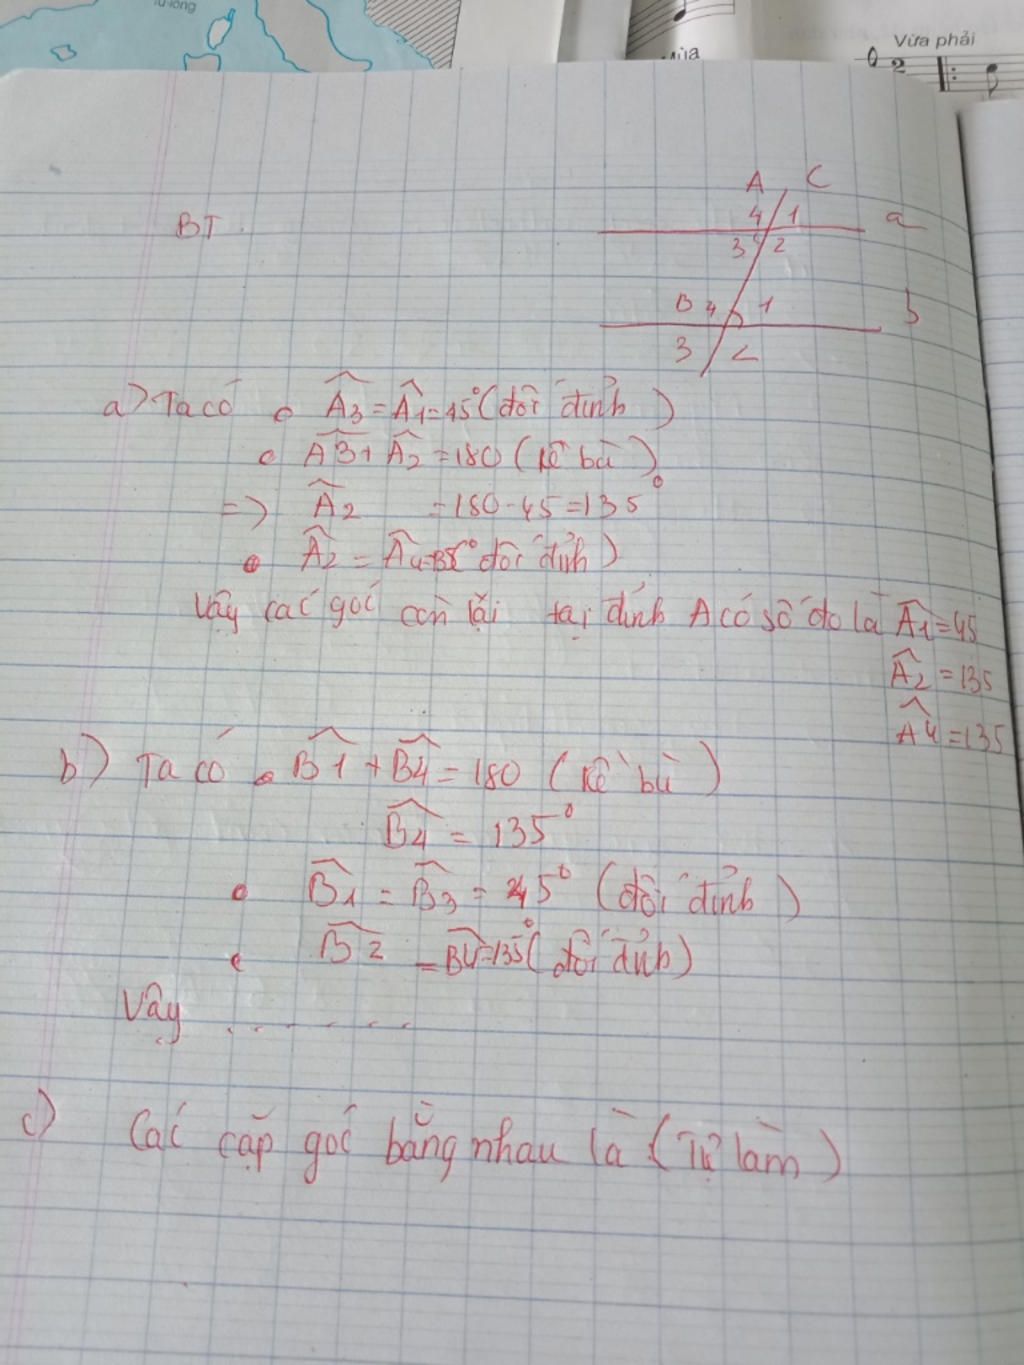 Vừa phải
A C
BT
4 1 a
3 2
B 4 1 b
3 2
a) Ta có Â3 = Â1 = 45° (đối đỉnh)
Â3 + Â2 = 180 (kề bù)
=> Â2 = 180 - 45 = 135°
Â2 = Â4 = 135° đối đỉnh)
Vậy các góc còn lại tại đỉnh A có số đo là Â1 = 45
Â2 = 135
Â4 = 135
b) Ta có B̂1 + B̂4 = 180 (Kề bù)
B̂4 = 135°
B̂1 = B̂3 = 45° (đối đỉnh)
B̂2 = B̂4 = 135° (đối đỉnh)
Vậy . . . . . .
c) Các cặp góc bằng nhau là (Tự làm)